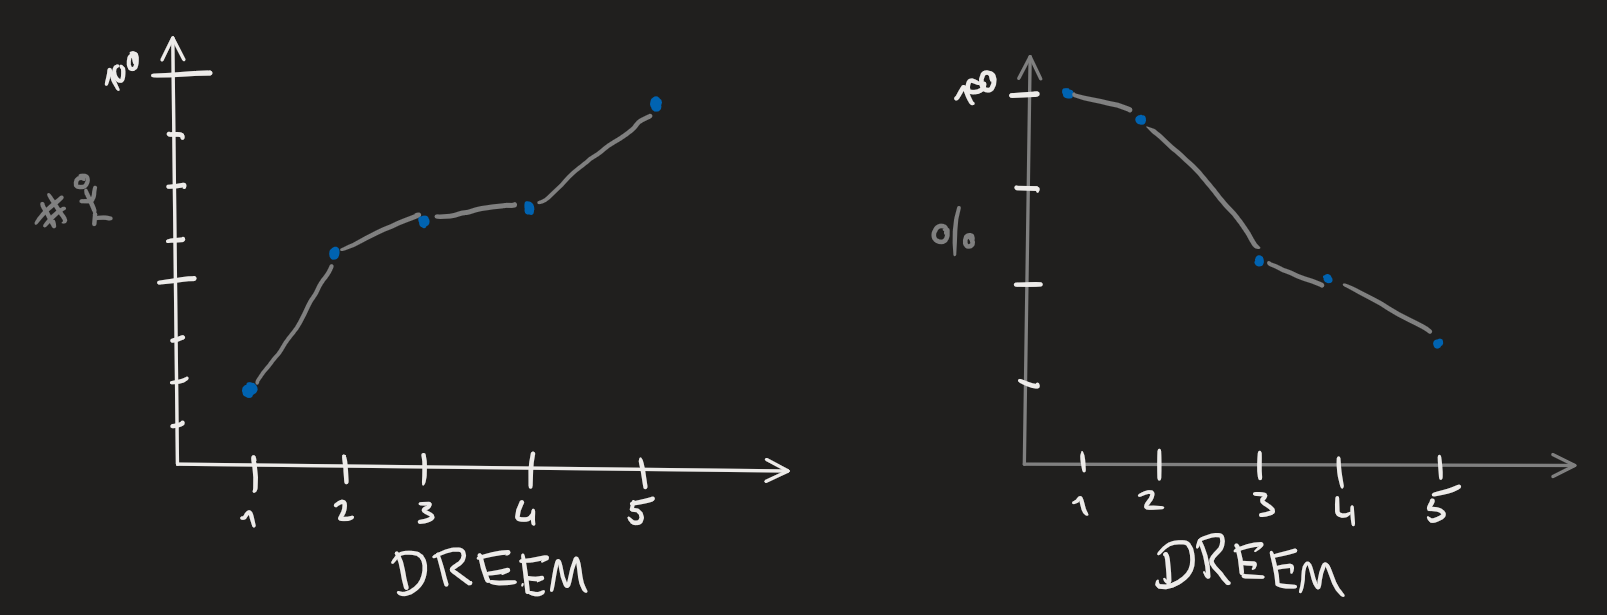 100
#
1 2 3 4 5
DREEM
100
%
1 2 3 4 5
DREEM